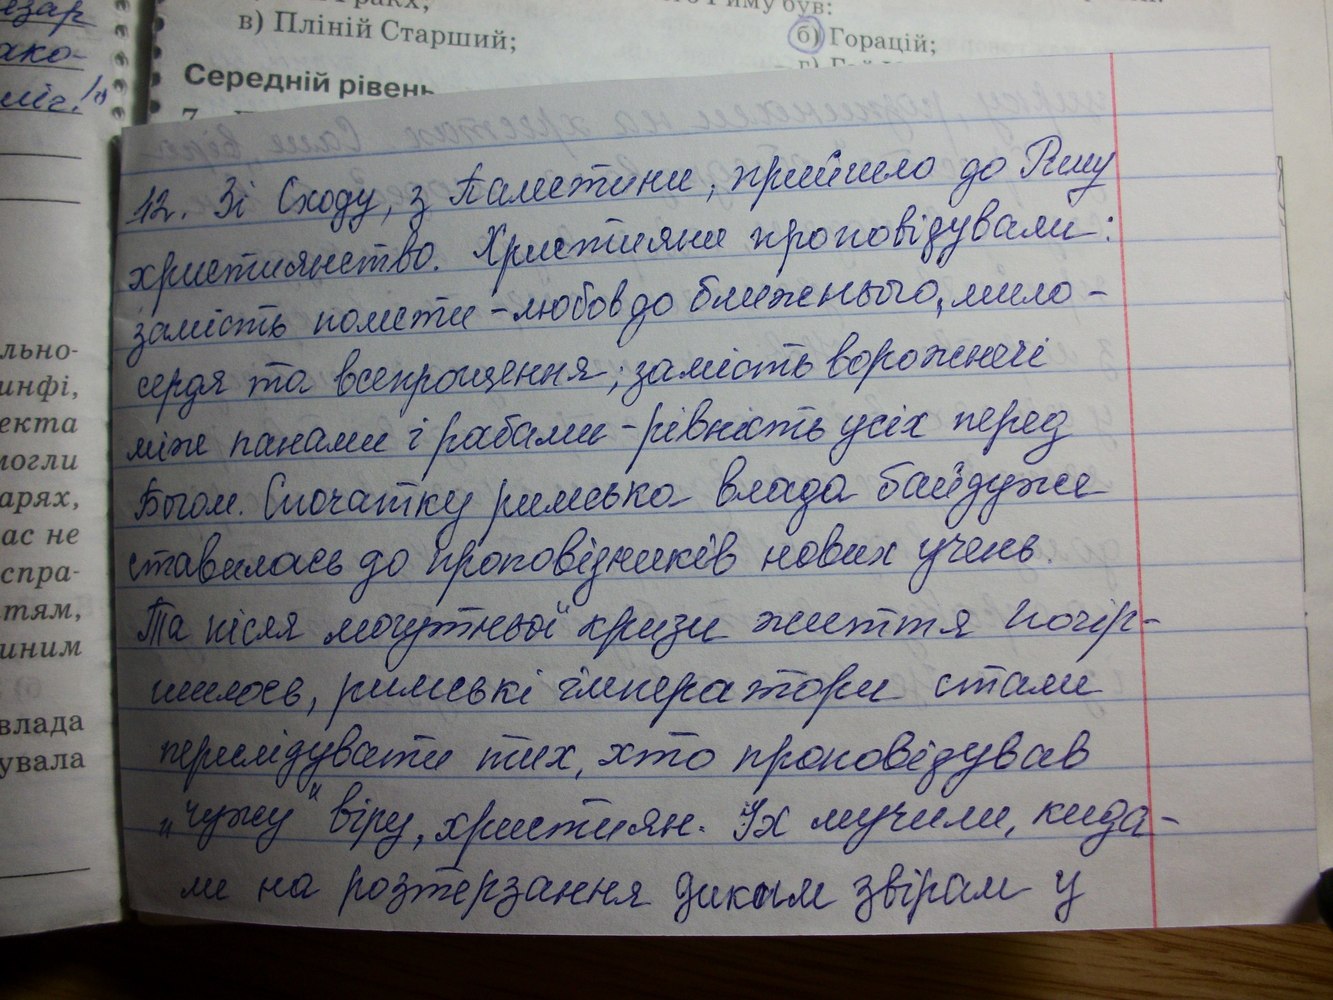 в) Пліній Старший;
б) Горацій;
Середній рівень
12. Зі Сходу, з Палестини, прийшло до Риму
християнство. Християни проповідували:
замість помсти – любов до ближнього, мило-
сердя та всепрощення; замість ворожнечі
між панами і рабами – рівність усіх перед
Богом. Спочатку римська влада байдуже
ставилась до проповідників нових учень.
Та після могутньої кризи життя погір-
шилось, римські імператори стали
переслідувати тих, хто проповідував
„чужу" віру, християн. Їх мучили, кида-
ли на розтерзання диким звірам у
льно-
инфі,
екта
могли
арях,
ас не
спра-
тям,
иним
влада
увала